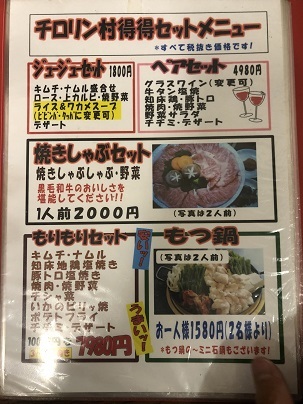 チロリン村得得セットメニュー
*すべて税抜き価格です!
ジュージューセット 1800円
キムチ・ナムル盛合せ
ロース・上カルビ・焼野菜
ライス&ワカメスープ
に変更可)
デザート
ペアセット 4980円
グラスワイン(変更可)
牛タン塩焼
知床鶏・豚トロ
焼肉・焼野菜
野菜サラダ
チヂミ・デザート
焼きしゃぶセット
焼きしゃぶしゃぶ・野菜
黒毛和牛のおいしさを
堪能してください!!
1人前2000円
(写真は2人前)
もりもりセット
キムチ・ナムル
知床地鶏塩焼き
豚トロ塩焼き
焼肉・焼野菜
チシャ菜
いかのピリッ焼
ポテトフライ
チヂミ・デザート
7980円
うまいッ!
もつ鍋
(写真は2人前)
お一人様1580円(2名様より)
*もつ鍋の〜ミニ石鍋もございます!